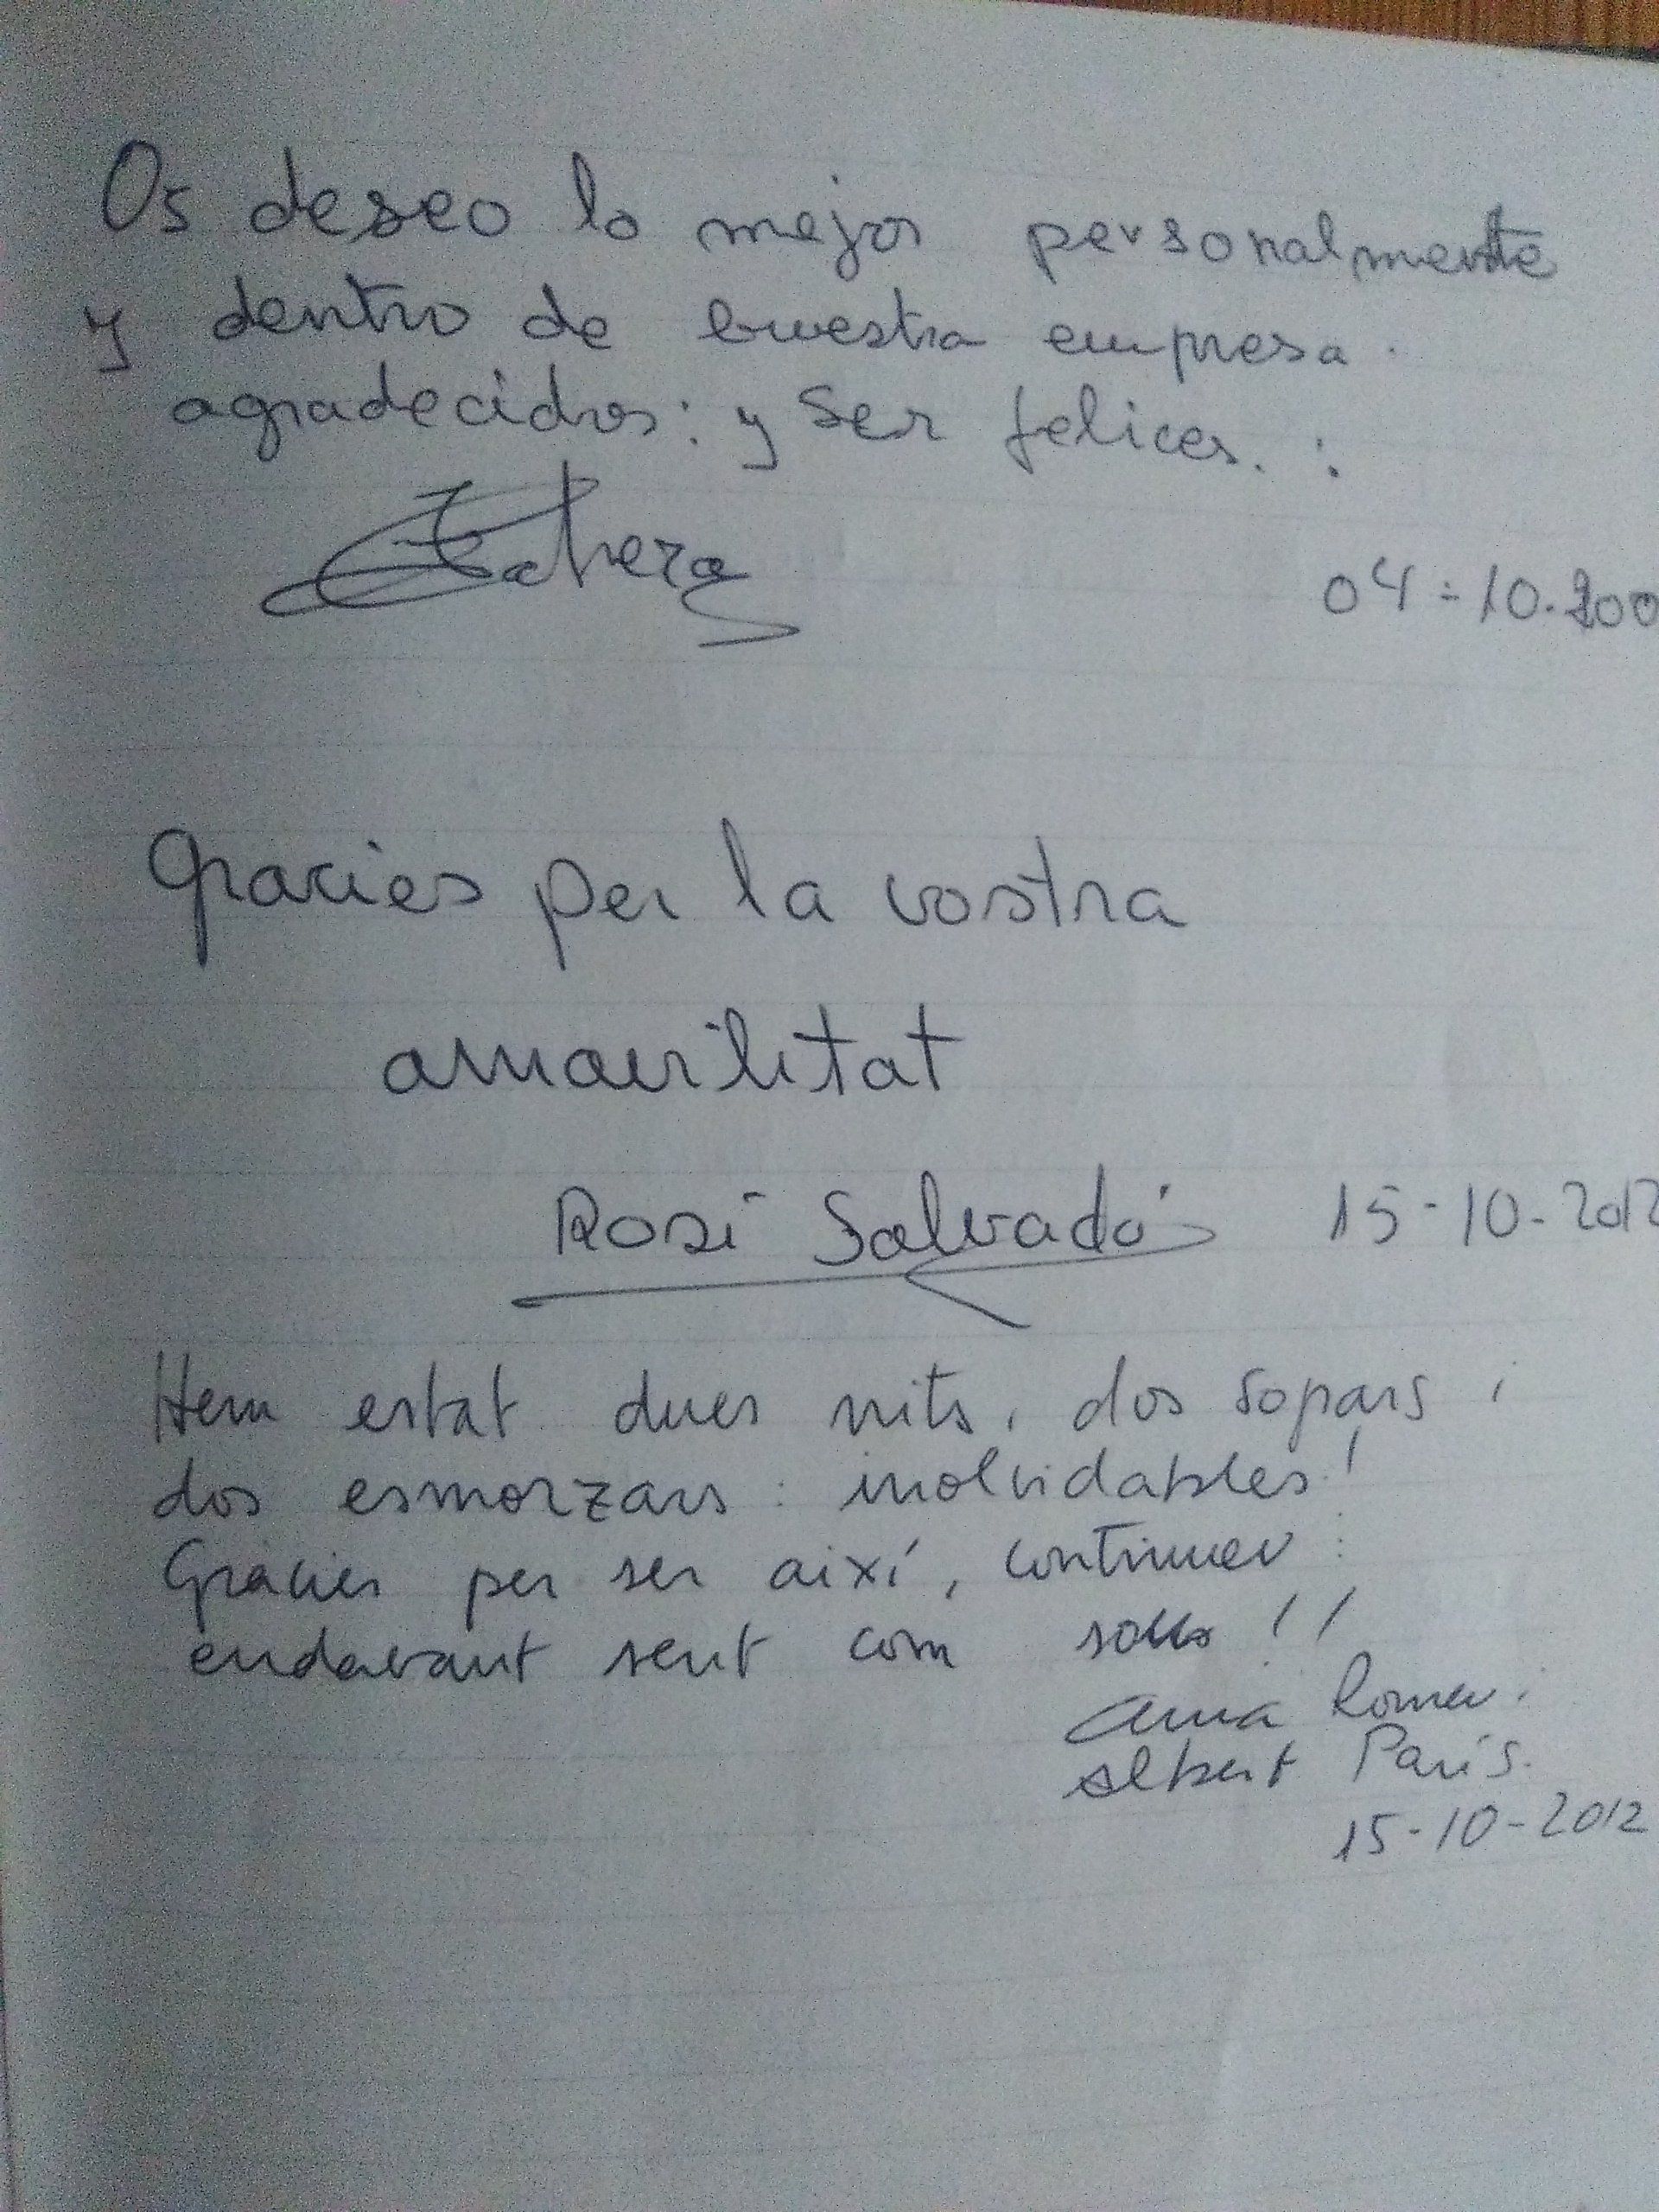 Os deseo lo mejor personalmente
y dentro de buestra empresa.
agradecidos: y ser felices. :
04-10.200
Gracies per la vostra
amavilitat
Rosi Salvadó 15-10-2012
Hem estat dues nits, dos sopars i
dos esmorzars: inolvidables!
Gràcies per ser així, continueu
endavant sent com sou!!
Anna Romeu i
Albert París.
15-10-2012